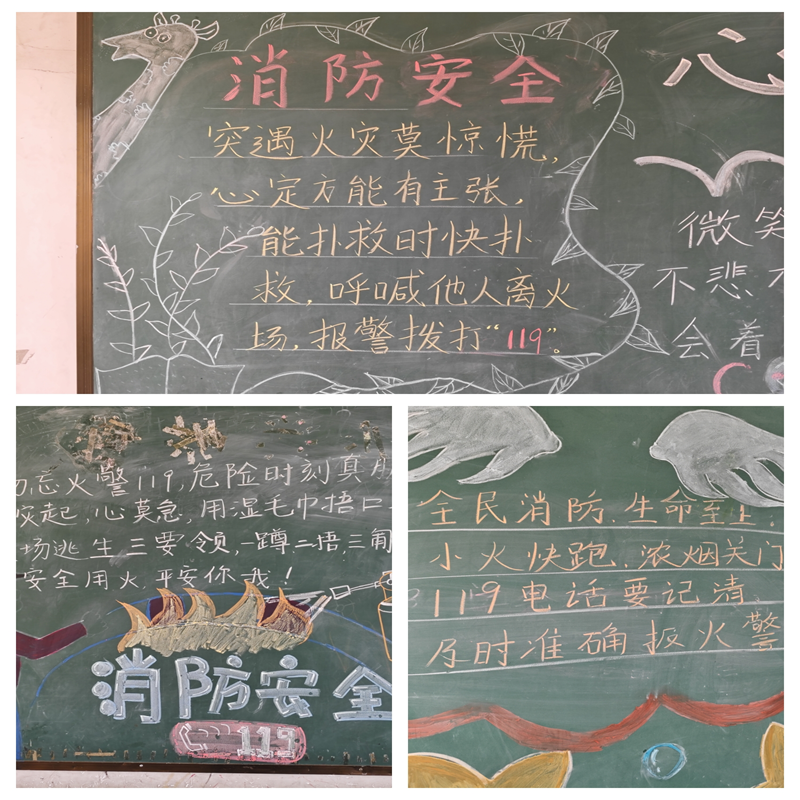 消防安全
突遇火灾莫惊慌,
心定方能有主张,
能扑救时快扑
救,呼喊他人离火
场,报警拨打“119”。
心
微笑
不悲
会着
忘火警119,危险时刻真
灾起,心莫急,用湿毛巾捂口
场逃生三要领,一蹲二捂,三角
安全用火,平安你我!
消防安全
119
全民消防,生命至上,
小火快跑,浓烟关门
119电话要记清
及时准确报火警